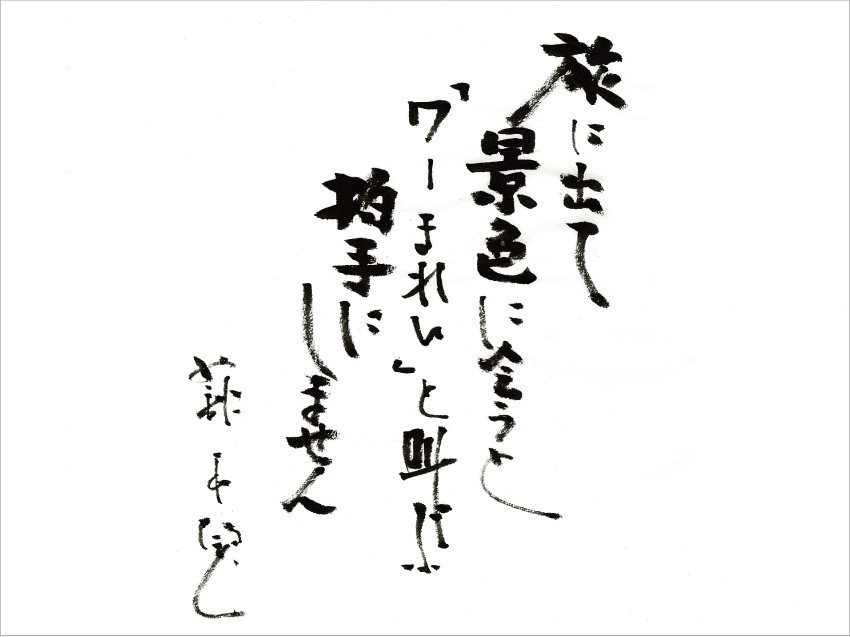 旅に出て
景色に会うと
「ワーきれい」と叫ぶ
拍手に
しません